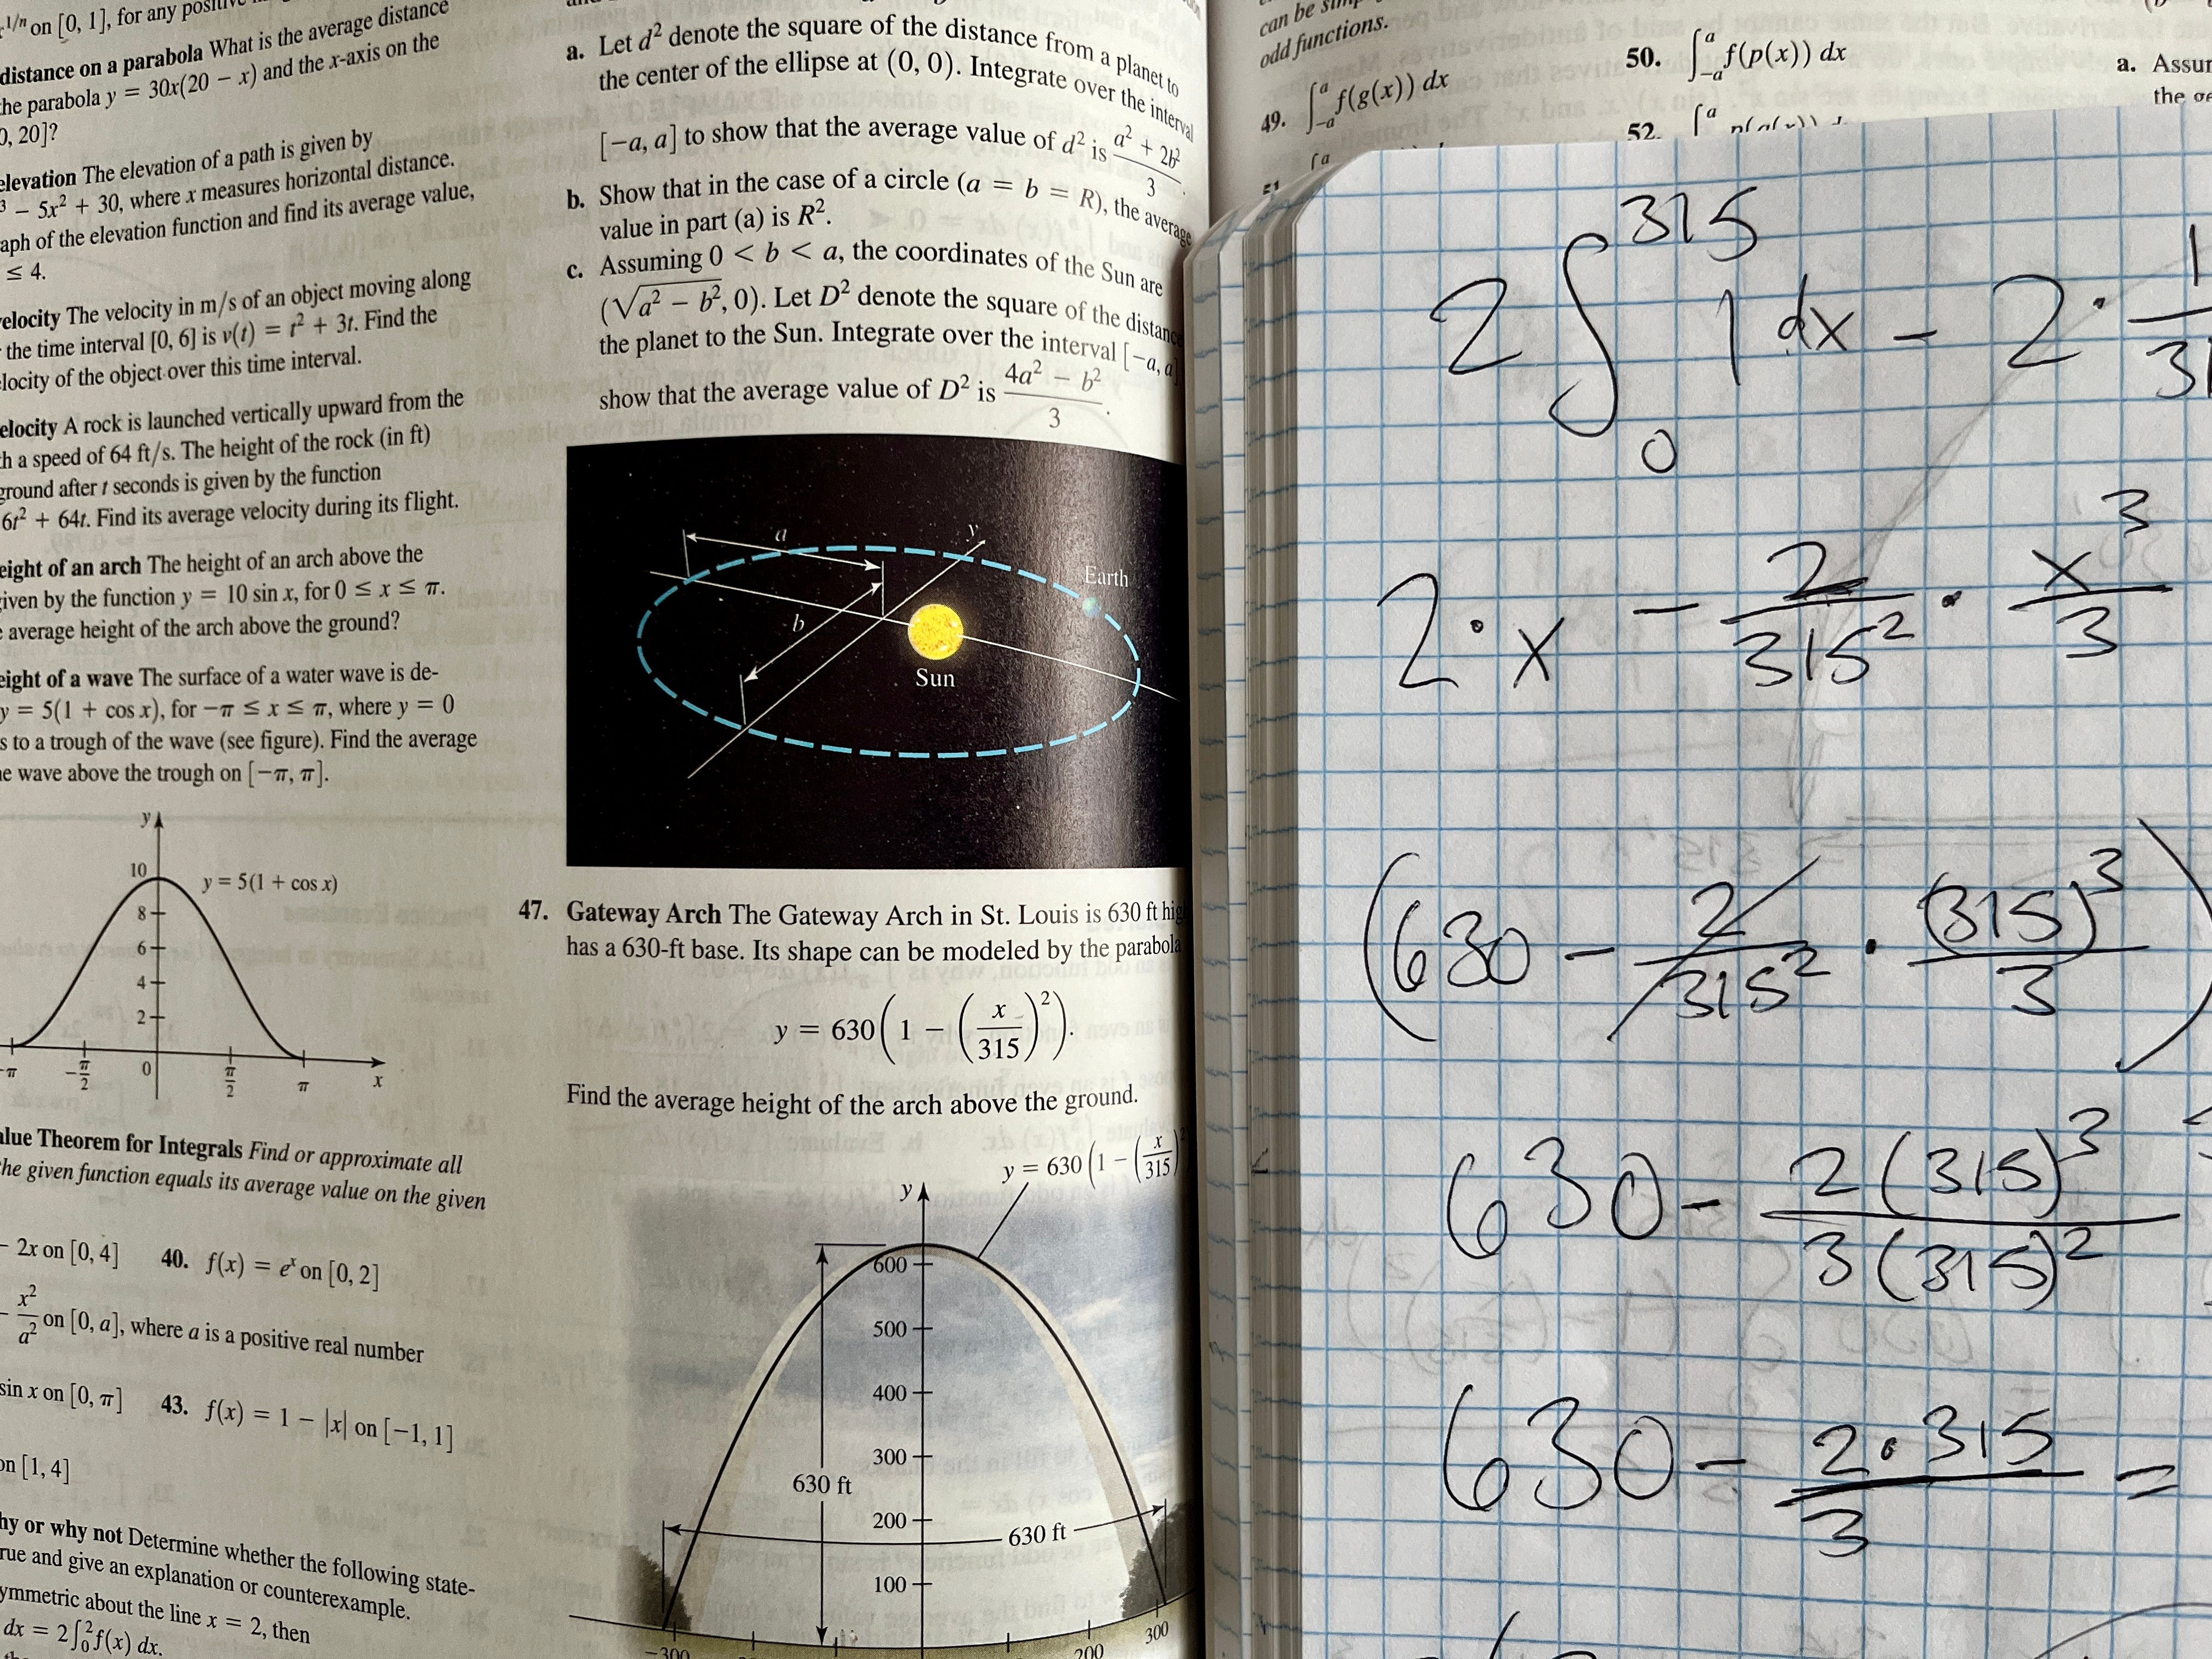 x^{1/n} on [0, 1], for any positive
distance on a parabola What is the average distance
the parabola y = 30x(20 − x) and the x-axis on the
0, 20]?
elevation The elevation of a path is given by
³ − 5x² + 30, where x measures horizontal distance.
aph of the elevation function and find its average value,
≤ 4.
velocity The velocity in m/s of an object moving along
the time interval [0, 6] is v(t) = t² + 3t. Find the
locity of the object over this time interval.
elocity A rock is launched vertically upward from the
h a speed of 64 ft/s. The height of the rock (in ft)
ground after t seconds is given by the function
6t² + 64t. Find its average velocity during its flight.
eight of an arch The height of an arch above the
given by the function y = 10 sin x, for 0 ≤ x ≤ π.
e average height of the arch above the ground?
eight of a wave The surface of a water wave is de-
y = 5(1 + cos x), for −π ≤ x ≤ π, where y = 0
s to a trough of the wave (see figure). Find the average
e wave above the trough on [−π, π].
y
10
8
6
4
2
y = 5(1 + cos x)
−π
−π/2
0
π/2
π
x
alue Theorem for Integrals Find or approximate all
he given function equals its average value on the given
− 2x on [0, 4]
40. f(x) = eˣ on [0, 2]
− x²/a² on [0, a], where a is a positive real number
sin x on [0, π]
43. f(x) = 1 − |x| on [−1, 1]
on [1, 4]
hy or why not Determine whether the following state-
rue and give an explanation or counterexample.
ymmetric about the line x = 2, then
dx = 2∫₀² f(x) dx.
a. Let d² denote the square of the distance from a planet to
the center of the ellipse at (0, 0). Integrate over the interval
[−a, a] to show that the average value of d² is (a² + 2b²)/3.
b. Show that in the case of a circle (a = b = R), the average
value in part (a) is R².
c. Assuming 0 < b < a, the coordinates of the Sun are
(√(a² − b²), 0). Let D² denote the square of the distance
the planet to the Sun. Integrate over the interval [−a, a]
show that the average value of D² is (4a² − b²)/3.
a
y
Earth
b
Sun
47. Gateway Arch The Gateway Arch in St. Louis is 630 ft hig
has a 630-ft base. Its shape can be modeled by the parabola
y = 630(1 − (x/315)²).
Find the average height of the arch above the ground.
y = 630(1 − (x/315)
y
600
500
400
300
200
100
630 ft
630 ft
−300
200
300
can be
odd functions.
49. ∫₋ₐᵃ f(g(x)) dx
50. ∫₋ₐᵃ f(p(x)) dx
52.
51.
a. Assum
the
315
2∫ 1 dx − 2 · 1/31
0
2·x − 2/315² · x³/3
(630 − 2/315² · (315)³/3)
630 − 2(315)³/3(315)²
630 − 2·315/3 =